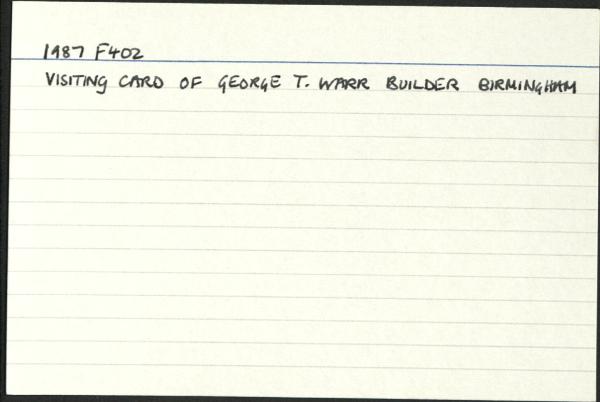 1987 F402
VISITING CARD OF GEORGE T. WARR BUILDER BIRMINGHAM